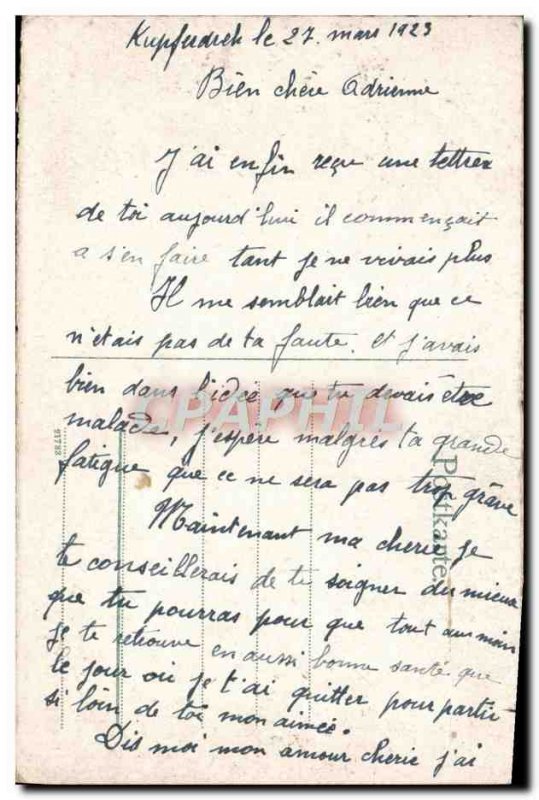 Kupferdreh le 27. mars 1923
Bien chère Adrienne
J'ai enfin reçu une lettre
de toi aujourd'hui il commençait
a s'en faire tant je ne vivais plus
Il me semblait bien que ce
n'étais pas de ta faute. et j'avais
bien dans l'idée que tu devais être
malade, j'espère malgrès ta grande
fatigue que ce ne sera pas trop grâve
Maintenant ma cherie je
te conseillerais de te soigner du mieux
que tu pourras pour que tout au moin
je te retrouve en aussi bonne santé que
le jour où je t'ai quitter pour partir
si loin de toi mon aimée.
Dis moi mon amour cherie j'ai
Postkarte
CPAPHIL